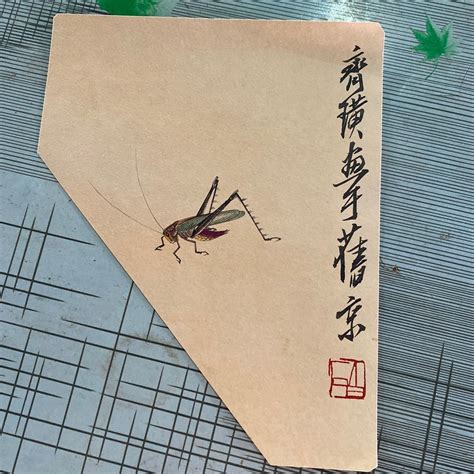 齊璜畫于舊京